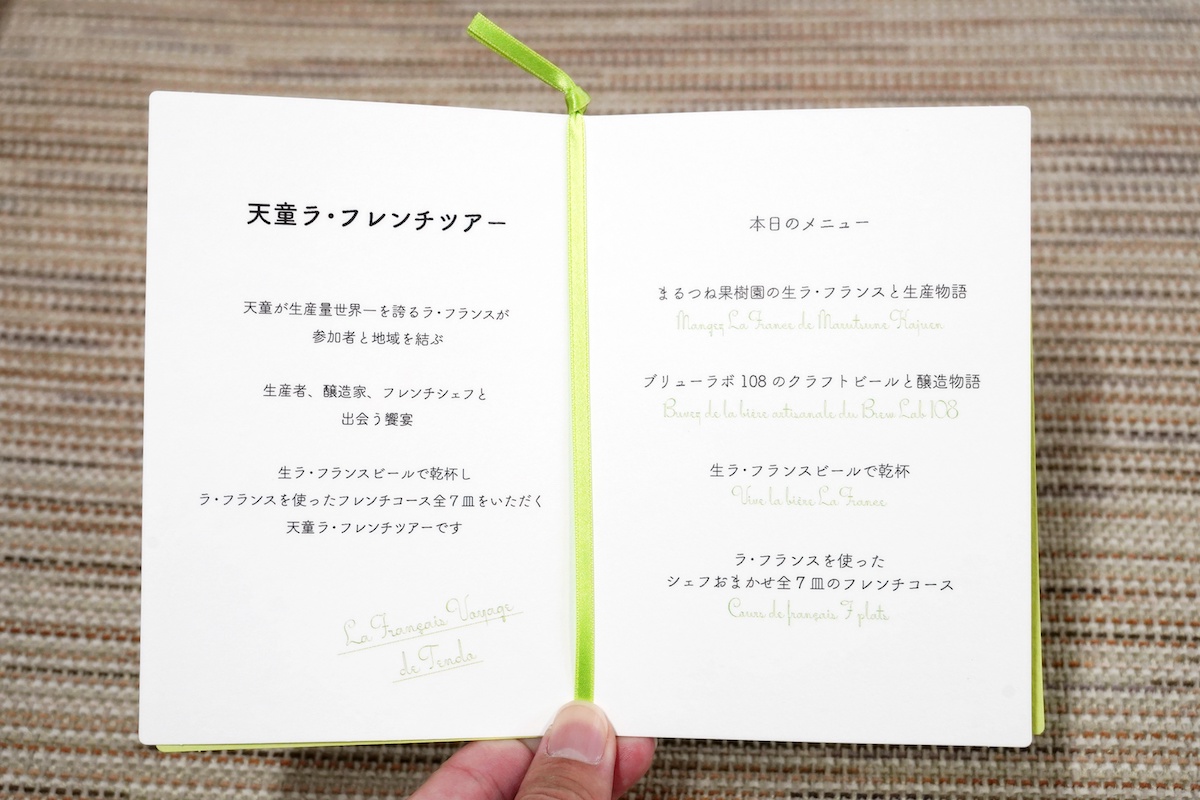 天童ラ・フレンチツアー
天童が生産量世界一を誇るラ・フランスが
参加者と地域を結ぶ
生産者、醸造家、フレンチシェフと
出会う饗宴
生ラ・フランスビールで乾杯し
ラ・フランスを使ったフレンチコース全7皿をいただく
天童ラ・フレンチツアーです
La Français Voyage
de Tendo
本日のメニュー
まるつね果樹園の生ラ・フランスと生産物語
Mangez La France de Marutsune Kajuen
ブリューラボ 108 のクラフトビールと醸造物語
Buvez de la bière artisanale du Brew Lab 108
生ラ・フランスビールで乾杯
Vive la bière La France
ラ・フランスを使った
シェフおまかせ全7皿のフレンチコース
Cours de français 7 plats